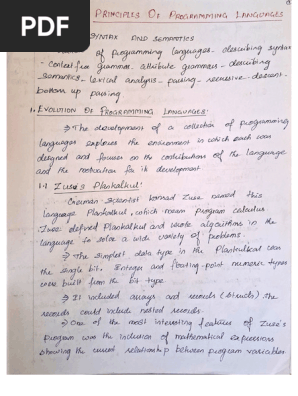 PDF
PRINCIPLES OF PROGRAMMING LANGUAGES
SYNTAX AND SEMANTICS
of programming languages - describing syntax
- context free grammar - attribute grammars - describing
semantics - lexical analysis - parsing - recursive - descent -
bottom up parsing
1. EVOLUTION OF PROGRAMMING LANGUAGES:
⇒ The development of a collection of programming
languages explores the environment in which each was
designed and focuses on the contributions of the language
and the motivation for its development
1.1 Zuse's Plankalkul:
German Scientist konrad Zuse named this
language Plankalkul, which mean program calculus.
Zuse defined Plankalkul and wrote algorithms in the
language to solve a wide variety of problems.
⇒ The simplest data type in the Plankalkul was
the single bit. Integer and floating-point numeric types
were built from the bit type.
⇒ It included arrays and records (structs). the
records could include nested records.
⇒ One of the most interesting features of Zuse's
program was the inclusion of mathematical expressions
showing the current relationship between program variables.